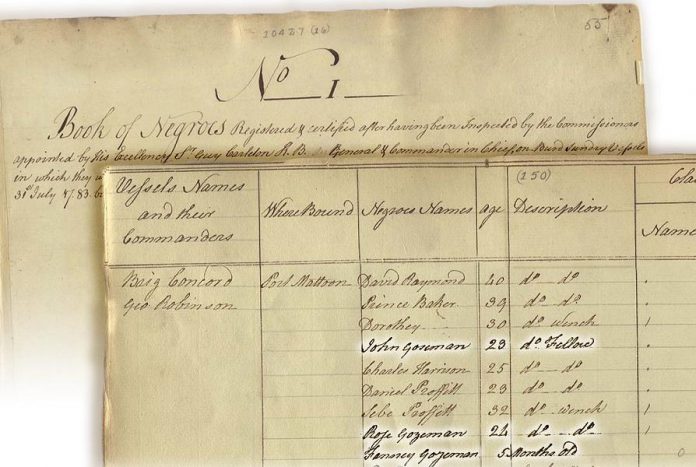 10427 (16) 55
No 1
Book of Negroes Registered & certified after having been Inspected by the Commissioners
appointed by His Excellency Sr. Guy Carleton K.B. General & Commander in Chief, on Board Sundry Vessels
in which they w
31st July 1783.
Vessels Names and their Commanders Where Bound Negroes Names age (150) Description Cla
Name
Brig Concord Port Mattoon David Raymond 40 do do
Geo Robinson Prince Baker 39 do do
Dorothey 30 do wench 1
John Gozeman 23 do Fellow
Charles Harrison 25 do do
Daniel Proffitt 23 do do
Sebe Proffitt 32 do wench 1
Rose Gozeman 24 do do 1
Fanney Gozeman 5 Months old 0